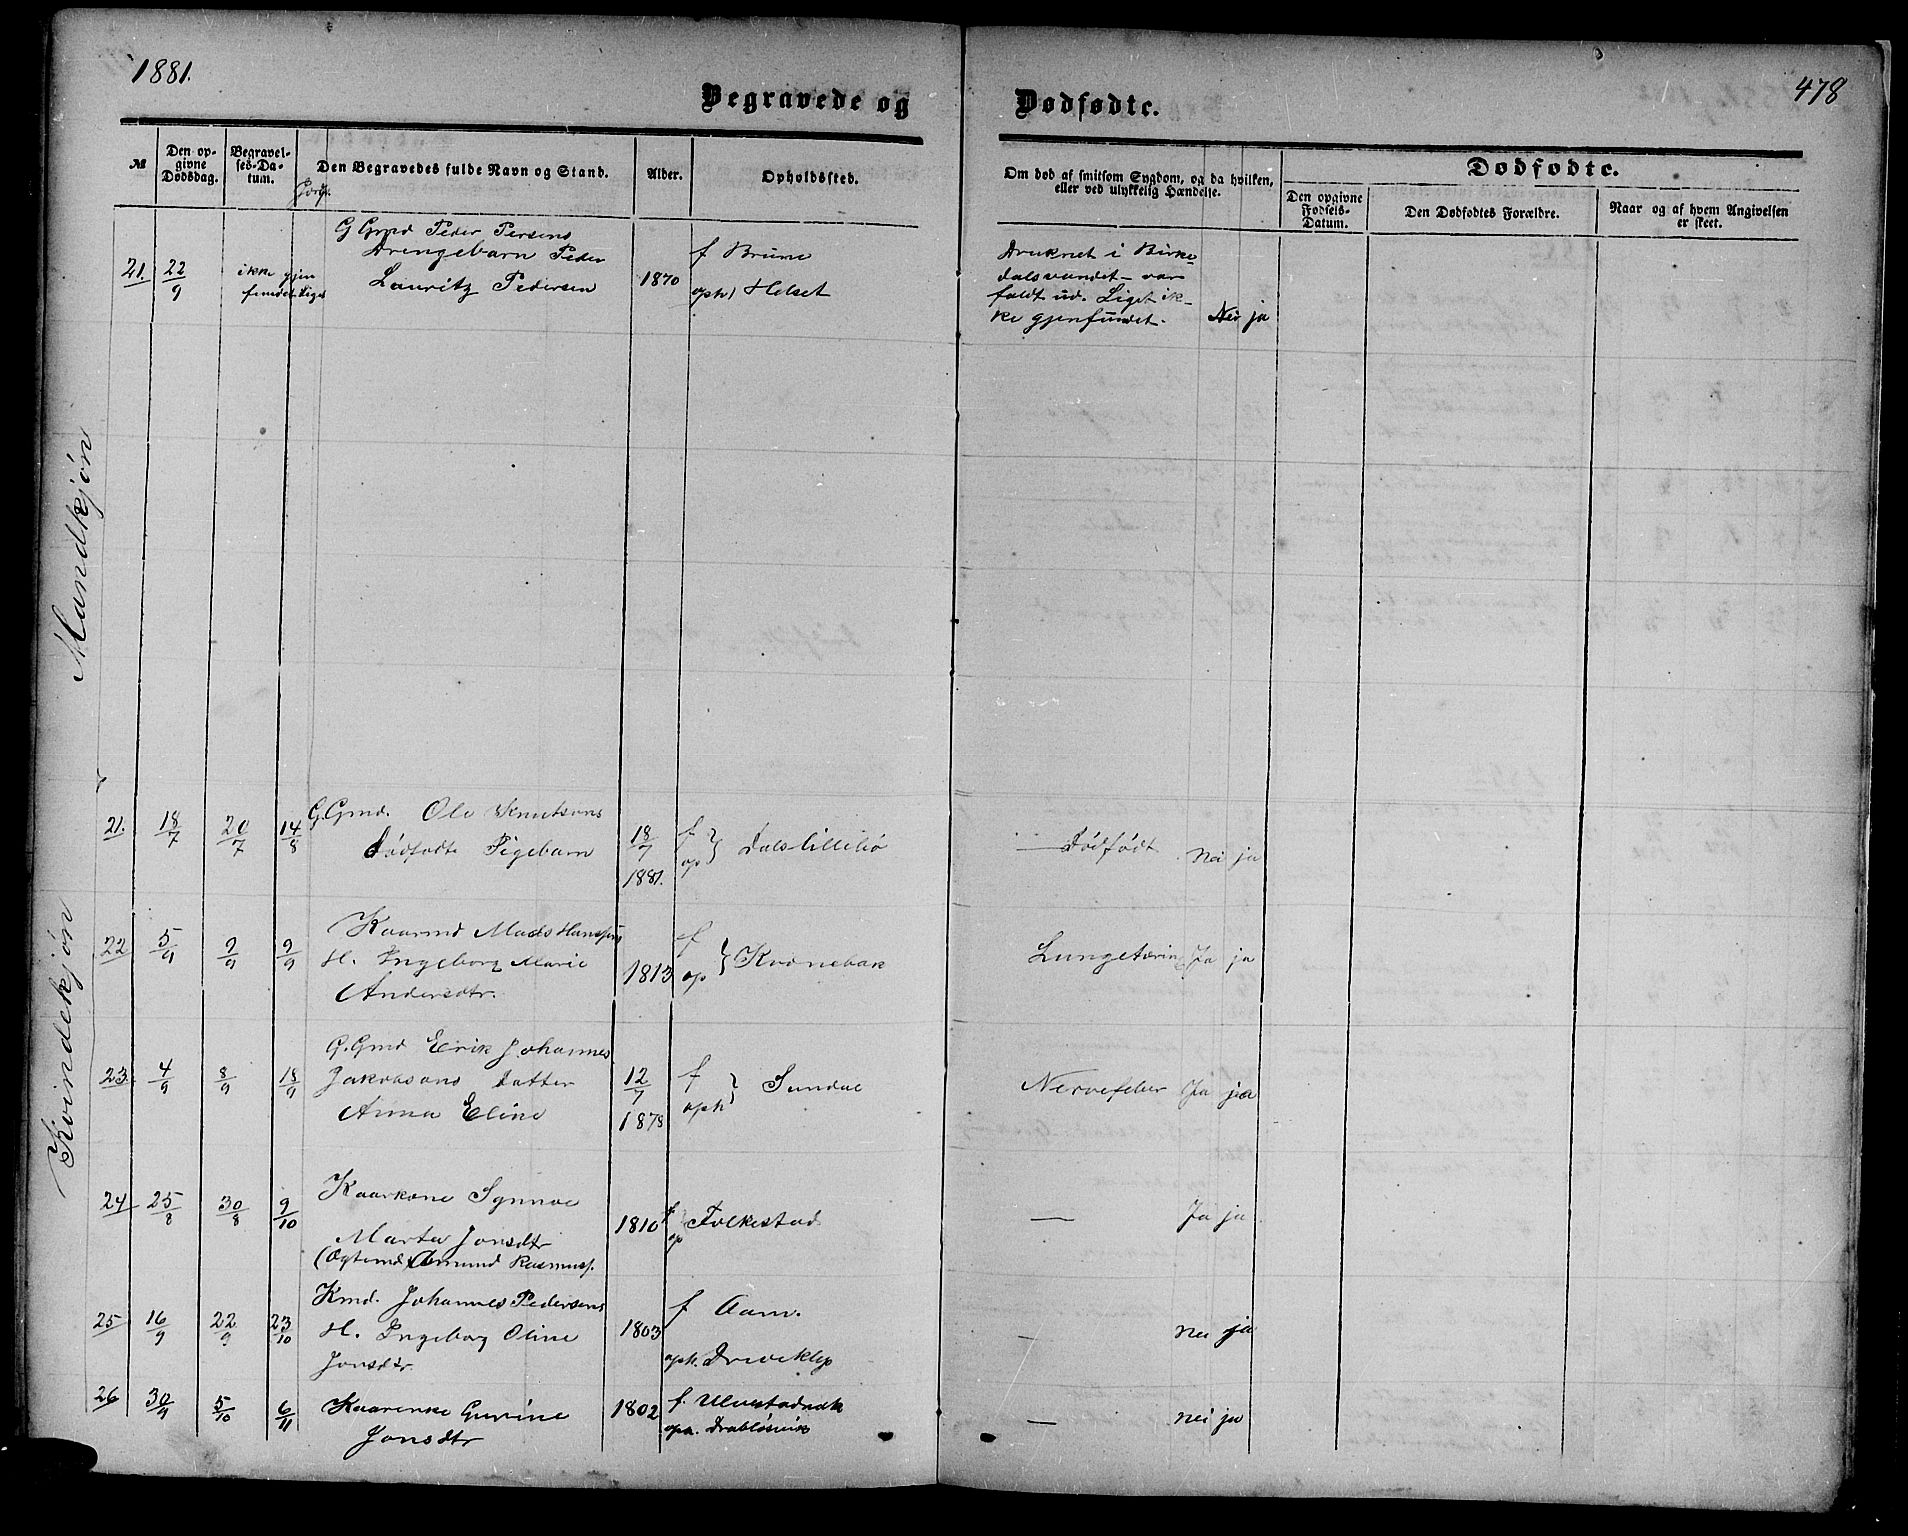 1881.
478
Begravede og Dødfødte.
№
Den opgivne Dødsdag.
Begravelses-Datum.
Den Begravedes fulde Navn og Stand.
Alder.
Opholdssted.
Om død af smitsom Sygdom, og da hvilken, eller ved ulykkelig Hændelse.
Dødfødte.
Den opgivne Fødsels-Datum.
Den Dødfødtes Forældre.
Naar og af hvem Angivelsen er skeet.
Mandkjøn
G Gmd Peder Persens
Drengebarn Peder
21. 22/9 ikke gjenfundet Liget Lauritz Pedersen 1870
f Brune
oph Helset
Druknet i Birke-
dalsvandet - var
faldt ud. Liget ik-
ke gjenfundet. Nei ja
Kvindekjøn
G.Gmd. Ole Knutsens
21. 18/7 20/7 14/8 Dødfødte Pigebarn 18/7 1881. f op } Dalslillebø Dødfødt nei ja
Kaarmd Mads Hanssens
22 5/9 9/9 9/9 H. Ingeborg Marie
Andersdtr. 1813 f op } Kvonebak Lungetærin Ja ja
G.Gmd Erik Johannes
23. 4/9 8/9 18/9 Jakobsens Datter
Anna Eline 12/7 1878 f oph } Sundal Nervefeber Ja ja
24 25/8 30/8 9/10 Kaarkone Synnøe
Marta Jonsdtr 1810 f op Folkestad — Ja ja
(Ægtemd Amund Rasmuss.
Kmd. Johannes Pedersens
25 16/9 22/9 23/10 H. Ingeborg Oline
Jonsdtr. 1803 f Aam.
oph. Driveklep — nei ja
26 30/9 5/10 6/11 Kaarenke Gurine
Jonsdtr 1802 f. Ulvestad
oph. Drabløsvik — nei ja